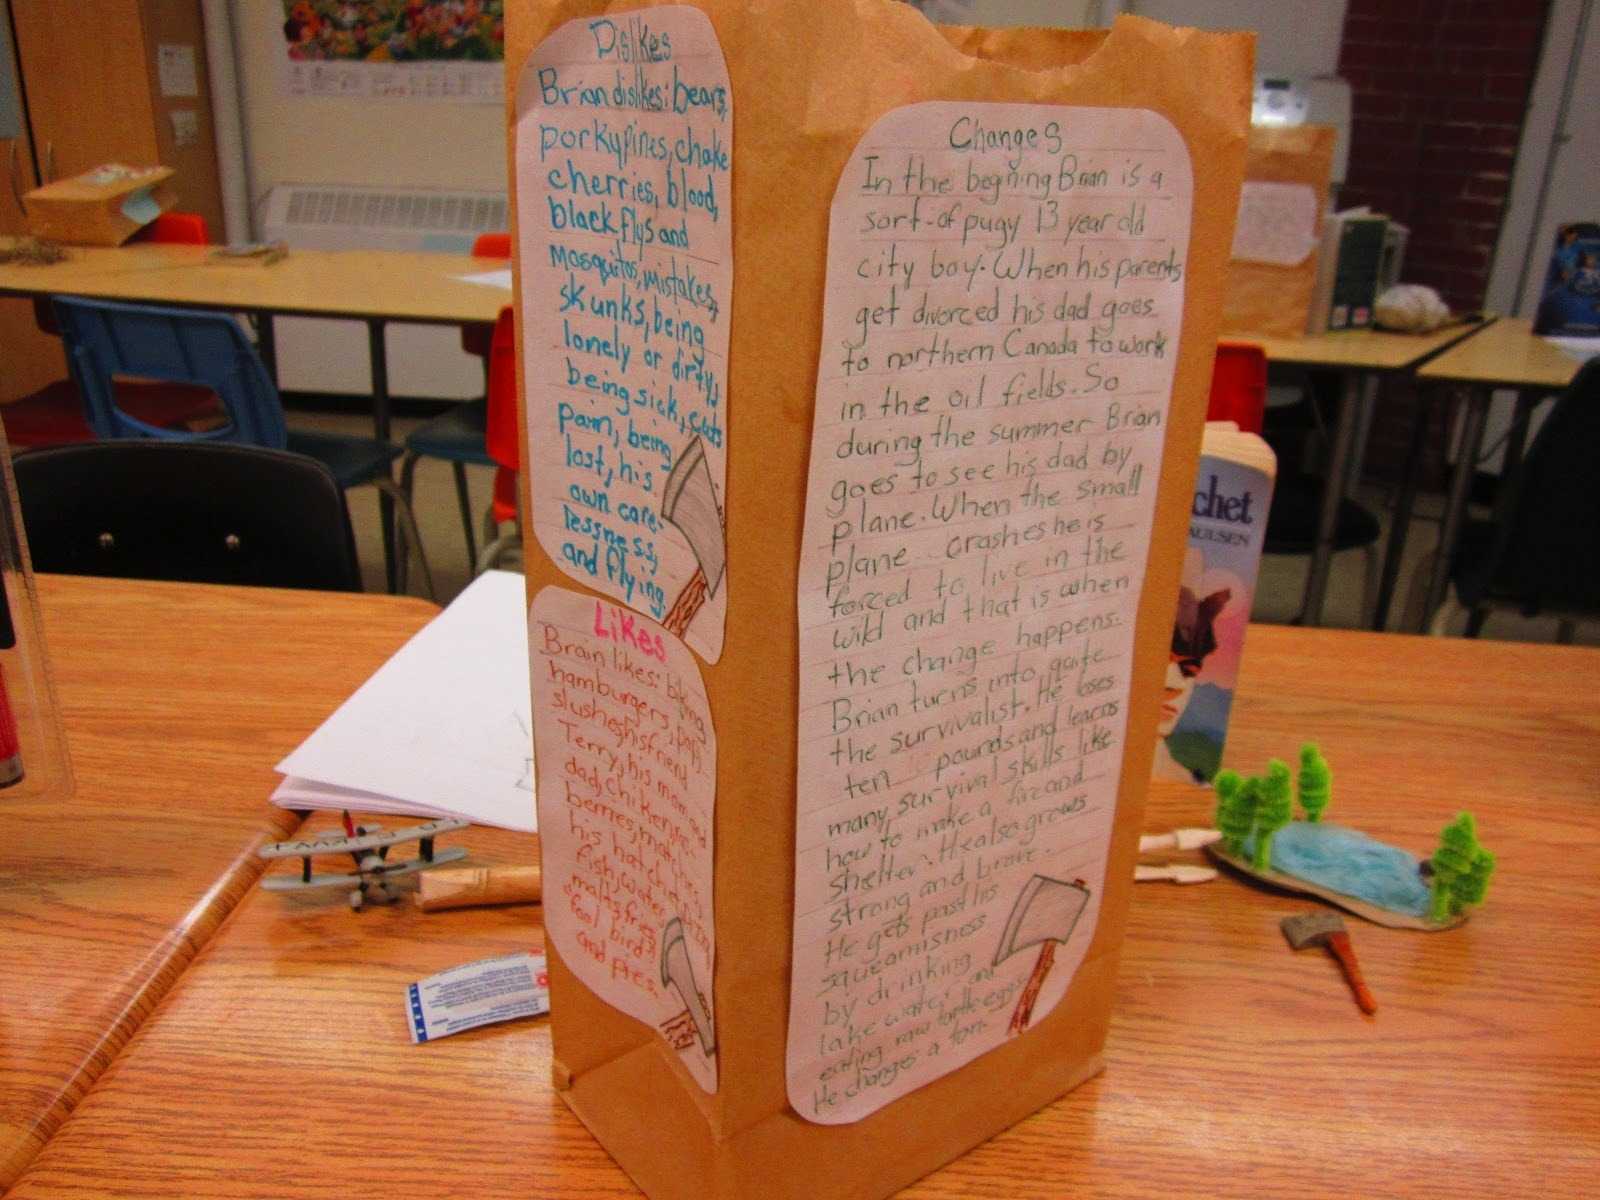 Dislikes
Brian dislikes: bears,
porkypines, choke
cherries, blood,
black flys and
mosquitos, mistakes,
skunks, being
lonely or dirty,
being sick, cuts
pain, being
lost, his
own care-
lessness,
and flying.
Likes
Brain likes: biking
hamburgers, pop,
slushes, his friend
Terry, his mom and
dad, chiken, 
berries, matches,
his hatchet,
fish, water
malts, fries
"fool birds"
and fires.
Changes
In the begning Brian is a
sort-of pugy 13 year old
city boy. When his parents
get divorced his dad goes
to northern Canada to work
in the oil fields. So
during the summer Brian
goes to see his dad by
plane. When the small
plane crashes he is
forced to live in the
wild and that is when
the change happens.
Brian turns into quite
the survivalist. He loses
ten pounds and learns
many survival skills like
how to make a fire and
shelter. He also grows
strong and brave.
He gets past his
squeamisness
by drinking
lake water and
eating raw turtle eggs.
He changes a ton.
chet
AULSEN